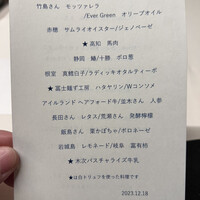 竹島さん モッツァレラ
/Ever Green オリーブオイル
赤穂 サムライオイスター/ジェノベーゼ
★高知 馬肉
静岡 鰻/十勝 ポロ葱
根室 真鱈白子/ラディッキオタルティーボ
★冨士麺ず工房 ハタヤリン/Wコンソメ
アイルランド ヘアフォード牛/並木さん 人参
長田さん レタス/荒瀬さん 発酵檸檬
飯島さん 栗かぼちゃ/ボロネーゼ
岩城島 レモネード/岐阜 富有柿
★木次パスチャライズ牛乳
★は白トリュフを使った料理です
2023.12.18